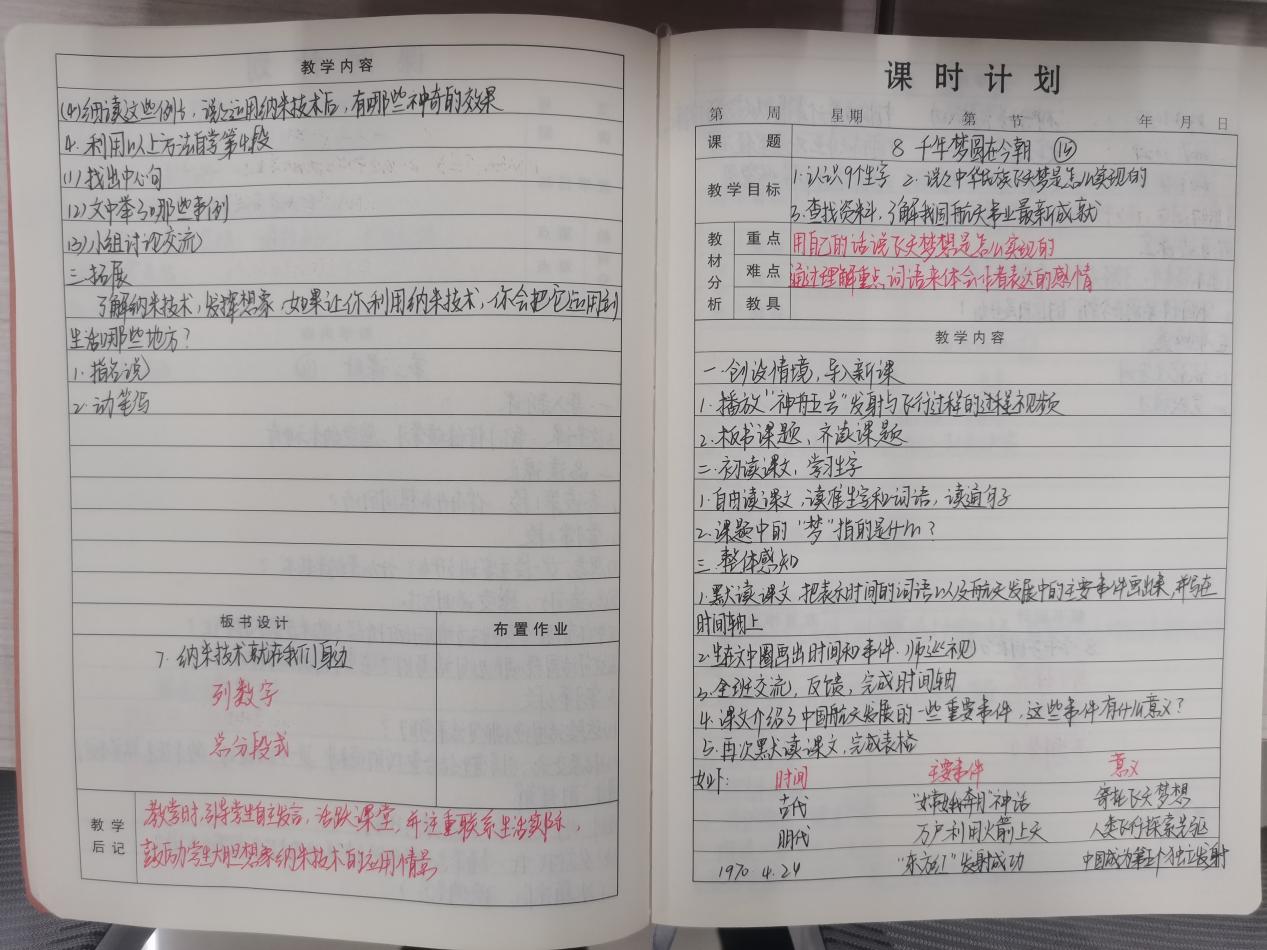 教学内容
(4)细读这些例子，说说运用纳米技术后，有哪些神奇的效果
4. 利用以上方法自学第4段
(1)找出中心句
(2)文中举了哪些事例
(3)小组讨论交流
三.拓展
了解纳米技术，发挥想象，如果让你利用纳米技术，你会把它运用到
生活哪些地方？
1.指名说
2.动笔写
板书设计
布置作业
7. 纳米技术就在我们身边
列数字
总分段式
教学后记
教学时，引导学生自主发言，活跃课堂，并注重联系生活实际，
鼓励学生大胆想象纳米技术的运用情景
课时计划
第 周 星期 第 节 年 月 日
课题
8 千年梦圆在今朝 ⑮
教学目标
1.认识9个生字 2.说说中华民族飞天梦是怎么实现的
3.查找资料，了解我国航天事业最新成就
教材分析
重点
用自己的话说飞天梦想是怎么实现的
难点
通过理解重点词语来体会作者表达的感情
教具
教学内容
一.创设情境，导入新课
1.播放"神舟五号"发射与飞行过程的过程视频
2.板书课题，齐读课题
二.初读课文，学习生字
1.自由读课文，读准生字和词语，读通句子
2.课题中的"梦"指的是什么？
三.整体感知
1.默读课文，把表示时间的词语以及航天发展中的主要事件画出来，并写在
时间轴上
2.生在文中圈画出时间和事件.(师巡视)
3.全班交流，反馈，完成时间轴
4.课文介绍了中国航天发展的一些重要事件，这些事件有什么意义？
5.再次默读课文，完成表格
如下： 时间 主要事件 意义
古代 "嫦娥奔月"神话 寄托飞天梦想
明代 万户利用火箭上天 人类飞行探索先驱
1970 4.24 "东方红"发射成功 中国成为第五个独立发射